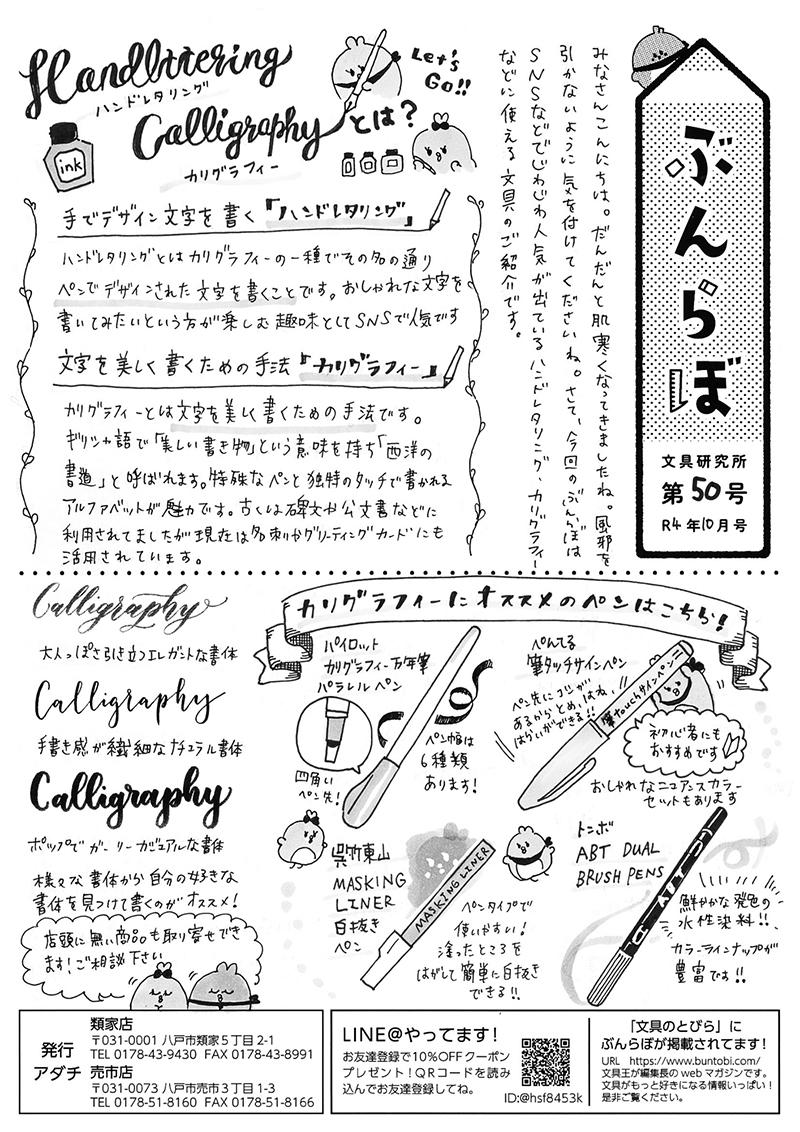 ぶんらぼ
文具研究所
第50号
R4年10月号
みなさんこんにちは。だんだんと肌寒くなってきましたね。風邪を
引かないように気を付けてくださいね。さて、今回のぶんらぼは
SNSなどでじわじわ人気が出ているハンドレタリング、カリグラフィー
などに使える文具のご紹介です。
Handlettering
ハンドレタリング
Let's
Go!!
Calligraphyとは?
カリグラフィー
ink
手でデザイン文字を書く『ハンドレタリング』
ハンドレタリングとはカリグラフィーの一種でその名の通り
ペンでデザインされた文字を書くことです。おしゃれな文字を
書いてみたいという方が楽しむ趣味としてSNSで人気です
文字を美しく書くための手法『カリグラフィー』
カリグラフィーとは文字を美しく書くための手法です。
ギリシャ語で「美しい書き物」という意味を持ち「西洋の
書道」と呼ばれます。特殊なペンと独特のタッチで書かれる
アルファベットが魅力です。古くは碑文や公文書などに
利用されてましたが現在は名刺やグリーティングカードにも
活用されています。
Calligraphy
大人っぽさ引き立つエレガントな書体
Calligraphy
手書き感が繊細なナチュラル書体
Calligraphy
ポップでガーリーカジュアルな書体
様々な書体から自分の好きな
書体を見つけて書くのがオススメ!
店頭に無い商品も取り寄せでき
ます!ご相談下さい
カリグラフィーにオススメのペンはこちら!
パイロット
カリグラフィー万年筆
パラレルペン
四角い
ペン先!
ペン幅は
6種類
あります!
ぺんてる
筆タッチサインペン
ペン先にコシが
あるからとめ、はね、
はらいができる!!
筆touchサインペン
初心者にも
おすすめです
おしゃれなニュアンスカラー
セットもあります
呉竹東山
MASKING
LINER
白抜き
ペン
MASKING LINER
ペンタイプで
使いやすい!
塗ったところを
はがして簡単に白抜き
できる!!
トンボ
ABT DUAL
BRUSH PENS
鮮やかな発色の
水性染料!!
カラーラインナップが
豊富です!!
発行
アダチ
類家店
〒031-0001 八戸市類家5丁目2-1
TEL 0178-43-9430 FAX 0178-43-8991
売市店
〒031-0073 八戸市売市3丁目1-3
TEL 0178-51-8160 FAX 0178-51-8166
LINE@やってます!
お友達登録で10%OFFクーポン
プレゼント!QRコードを読み
込んでお友達登録してね。
ID:@hsf8453k
「文具のとびら」に
ぶんらぼが掲載されてます!
URL https://www.buntobi.com/
文具王が編集長のwebマガジンです。
文具がもっと好きになる情報いっぱい!
是非ご覧ください。